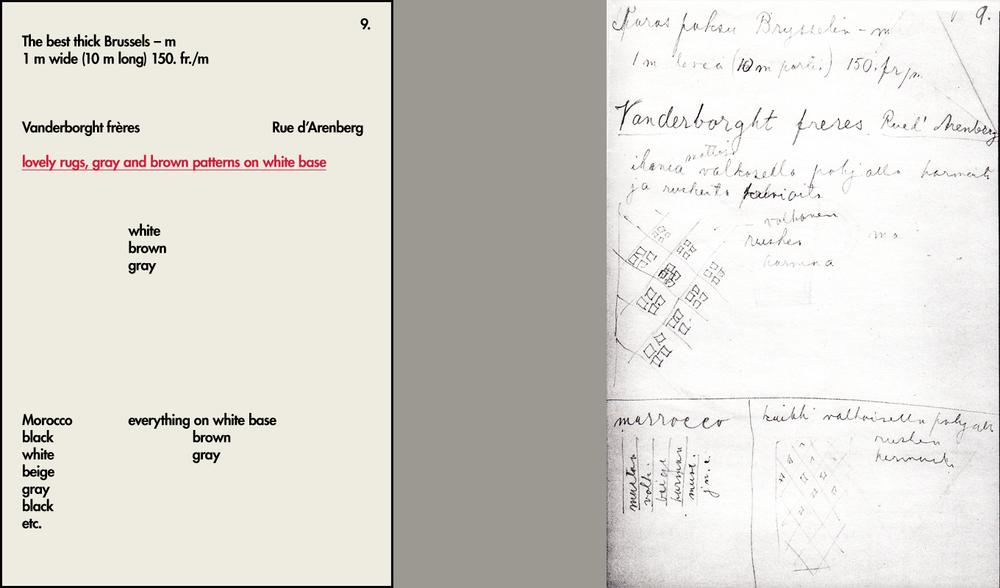 9.
The best thick Brussels – m
1 m wide (10 m long) 150. fr./m
Vanderborght frères Rue d'Arenberg
lovely rugs, gray and brown patterns on white base
white
brown
gray
Morocco everything on white base
black brown
white gray
beige
gray
black
etc.
9.
Paras paksu Brysselin - m
1 m leveä (10 m 150. fr/m
Vanderborght freres. Rue d' Arenberg
mattoja
ihania valkosella pohjalla harmaita
ja ruskeita kuvioita
valkonen
ruskea
harmaa
marrocco
mustaa
valk.
beige
harmaa
j.n.e.
kaikki valkoisella pohjalla
ruskea